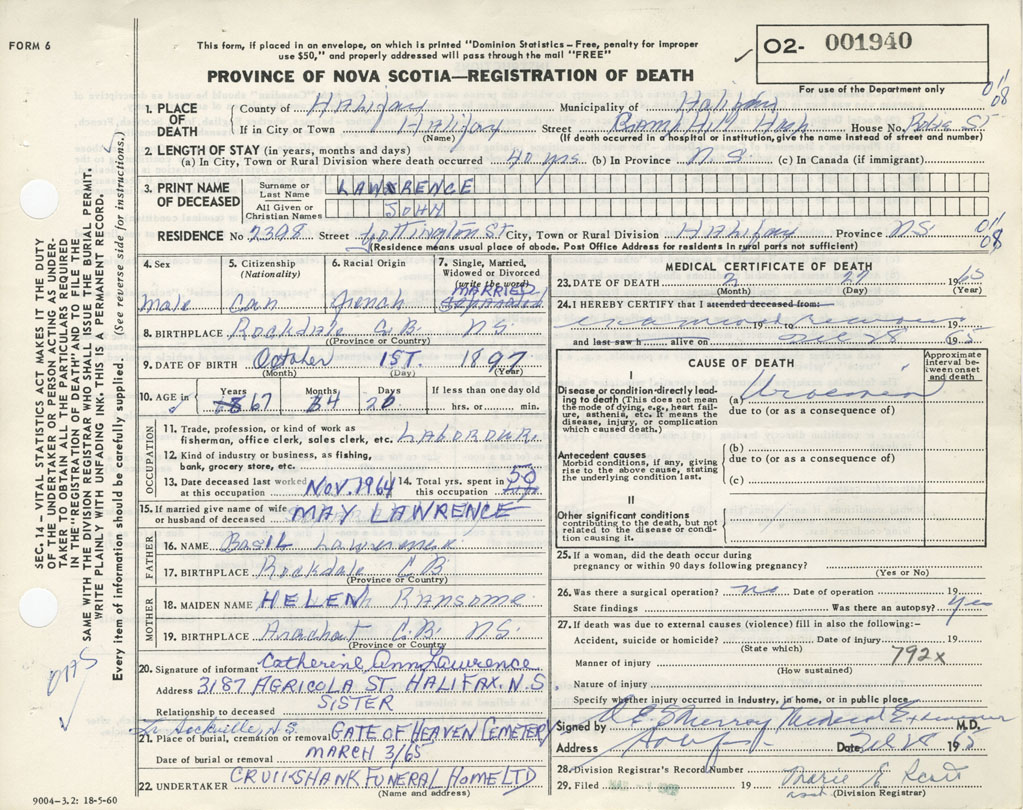 FORM 6
This form, if placed in an envelope, on which is printed "Dominion Statistics – Free, penalty for improper
use $50," and properly addressed will pass through the mail "FREE"
PROVINCE OF NOVA SCOTIA—REGISTRATION OF DEATH
O2- 001940
For use of the Department only
1. PLACE OF DEATH
County of Halifax Municipality of Halifax
If in City or Town Halifax Street Camp Hill Hosp House No. Robie St
(Name) (If death occurred in a hospital or institution, give the name instead of street and number)
08
2. LENGTH OF STAY (in years, months and days)
(a) In City, Town or Rural Division where death occurred 40 yrs (b) In Province N.S. (c) In Canada (if immigrant)
3. PRINT NAME OF DECEASED
Surname or Last Name LAWRENCE
All Given or Christian Names JOHN
RESIDENCE No. 2398 Street Gottingen St City, Town or Rural Division Halifax Province NS
08
(Residence means usual place of abode. Post Office Address for residents in rural parts not sufficient)
4. Sex
male
5. Citizenship (Nationality)
Can
6. Racial Origin
French
7. Single, Married, Widowed or Divorced (write the word)
MARRIED
Separated
8. BIRTHPLACE Rockdale C.B. N.S.
(Province or Country)
9. DATE OF BIRTH October 1ST. 1897
(Month) (Day) (Year)
10. AGE in
Years Months Days If less than one day old
67 4 26 hrs. or min.
OCCUPATION
11. Trade, profession, or kind of work as
fisherman, office clerk, sales clerk, etc. LABOROUR.
12. Kind of industry or business, as fishing,
bank, grocery store, etc.
13. Date deceased last worked at this occupation NOV. 1964 14. Total yrs. spent in this occupation 50
15. If married give name of wife or husband of deceased MAY LAWRENCE
FATHER
16. NAME Basil Lawrence
17. BIRTHPLACE Rockdale C B
(Province or Country)
MOTHER
18. MAIDEN NAME HELEN Ransome
19. BIRTHPLACE Arachat C.B. N.S.
(Province or Country)
20. Signature of informant Catherine Ann Lawrence
Address 3187 AGRICOLA ST. HALIFAX. N.S.
Relationship to deceased SISTER
Sackville, N.S.
21. Place of burial, cremation or removal GATE OF HEAVEN CEMETERY
Date of burial or removal MARCH 3/65
22. UNDERTAKER CRUIKSHANK FUNERAL HOME LTD
(Name and address)
9004-3.2: 18-5-60
MEDICAL CERTIFICATE OF DEATH
23. DATE OF DEATH 2 27 1965
(Month) (Day) (Year)
24. I HEREBY CERTIFY that I attended deceased from:
examined 19 to 19
and last saw h alive on Feb 28 1965
CAUSE OF DEATH
Approximate interval between onset and death
I
Disease or condition directly leading to death (This does not mean the mode of dying, e.g., heart failure, asthenia, etc. It means the disease, injury, or complication which caused death.)
(a) Uraemia
due to (or as a consequence of)
Antecedent causes
Morbid conditions, if any, giving rise to the above cause, stating the underlying condition last.
(b)
due to (or as a consequence of)
(c)
II
Other significant conditions
contributing to the death, but not related to the disease or condition causing it.
25. If a woman, did the death occur during
pregnancy or within 90 days following pregnancy?
(Yes or No)
26. Was there a surgical operation? no Date of operation 19
State findings Was there an autopsy? yes
27. If death was due to external causes (violence) fill in also the following:—
Accident, suicide or homicide? Date of injury 19
(State which)
792x
Manner of injury
(How sustained)
Nature of injury
Specify whether injury occurred in Industry, in home, or in public place
Signed by Murray Medical Examiner M.D.
Address Date Feb 28 1965
28. Division Registrar's Record Number
29. Filed 19 Marie E Scott
(Division Registrar)
SEC. 14 – VITAL STATISTICS ACT MAKES IT THE DUTY
OF THE UNDERTAKER OR PERSON ACTING AS UNDER-
TAKER TO OBTAIN ALL THE PARTICULARS REQUIRED
IN THE "REGISTRATION OF DEATH" AND TO FILE THE
SAME WITH THE DIVISION REGISTRAR WHO SHALL ISSUE THE BURIAL PERMIT.
WRITE PLAINLY WITH UNFADING INK. THIS IS A PERMANENT RECORD.
Every item of information should be carefully supplied. (See reverse side for instructions.)